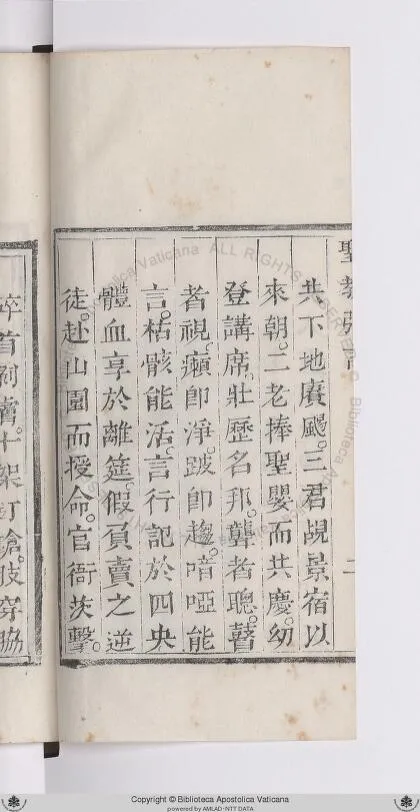 聖教
二
共下地賡颺。三君覘景宿以
來朝。二老捧聖嬰而共慶。幼
登講席。壯歷名邦。聾者聰。瞽
者視。癩即淨。跛即趨。喑啞能
言。枯骸能活。言行記於四央
體血享於離筵。假負賣之逆
徒。赴山園而授命。官衙茨擊。
首剥膚。十架釘鎗。肢穿脇
Vaticana ALL RIGHTS RESERVED © Biblioteca
Copyright © Biblioteca Apostolica Vaticana
powered by AMLAD-NTT DATA